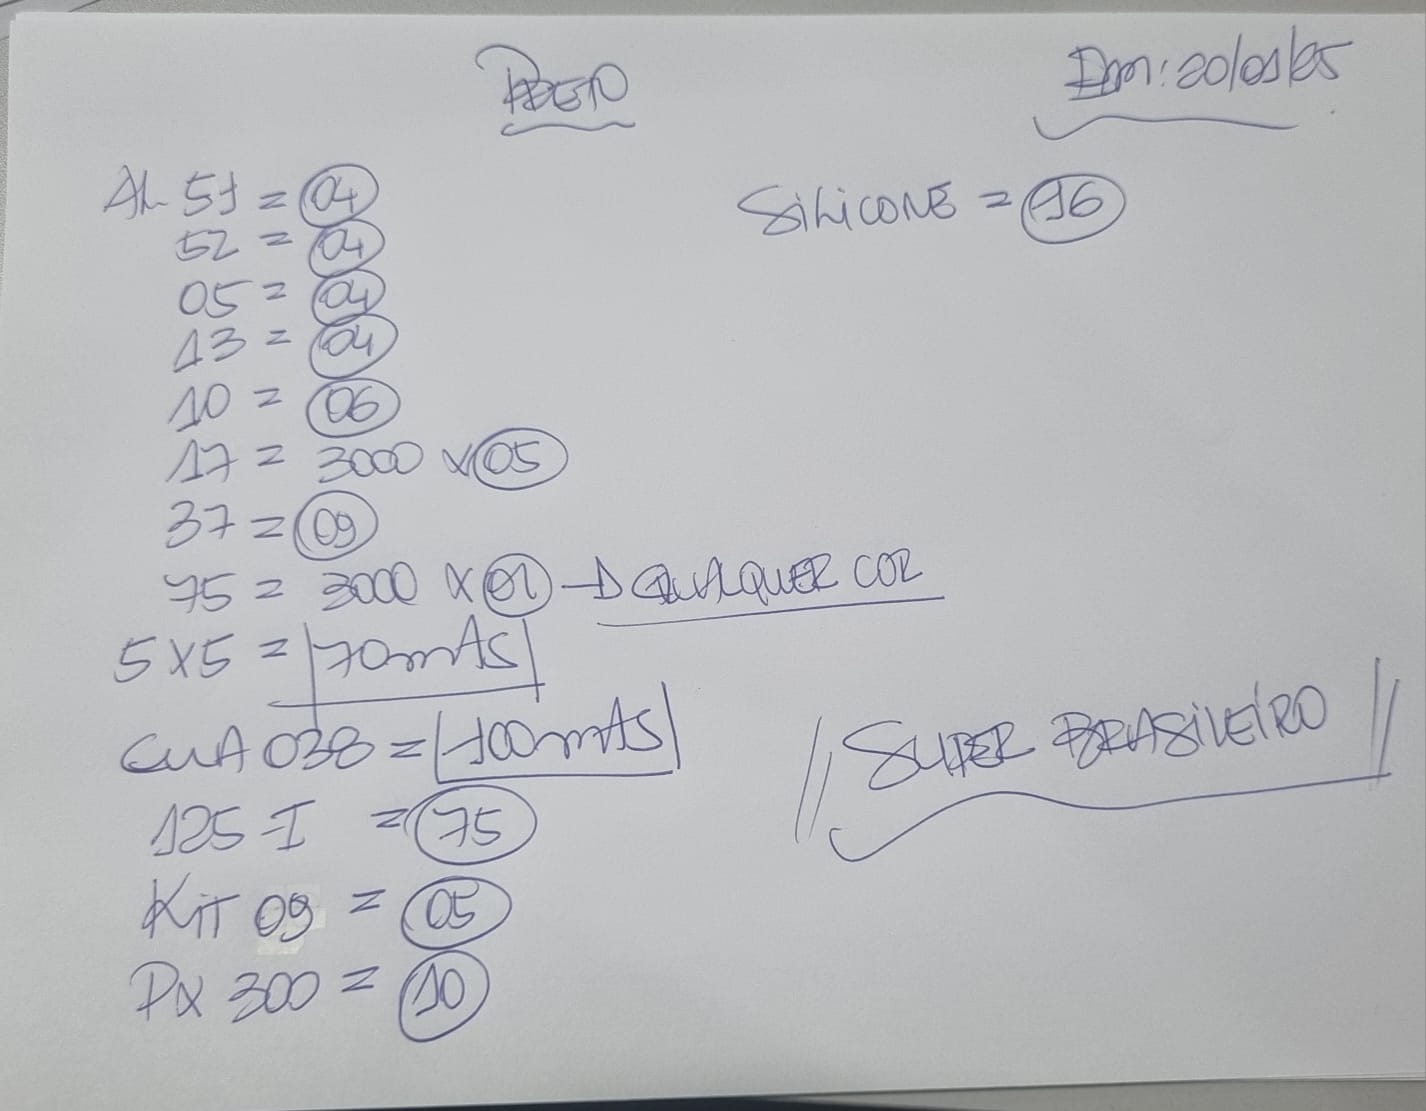 Em: 20/01/25
AL 51 = 04
52 = 04
05 = 04
13 = 04
10 = 06
17 = 3000 x 05
37 = 09
75 = 3000 x 01 → QUALQUER COR
5 x 5 = 70 mAs
CUA 038 = 100 mAs
125-I = 75
KiT 09 = 05
PX 300 = 10
SiLiCONE = 16
SUPER BRASiLEiRO